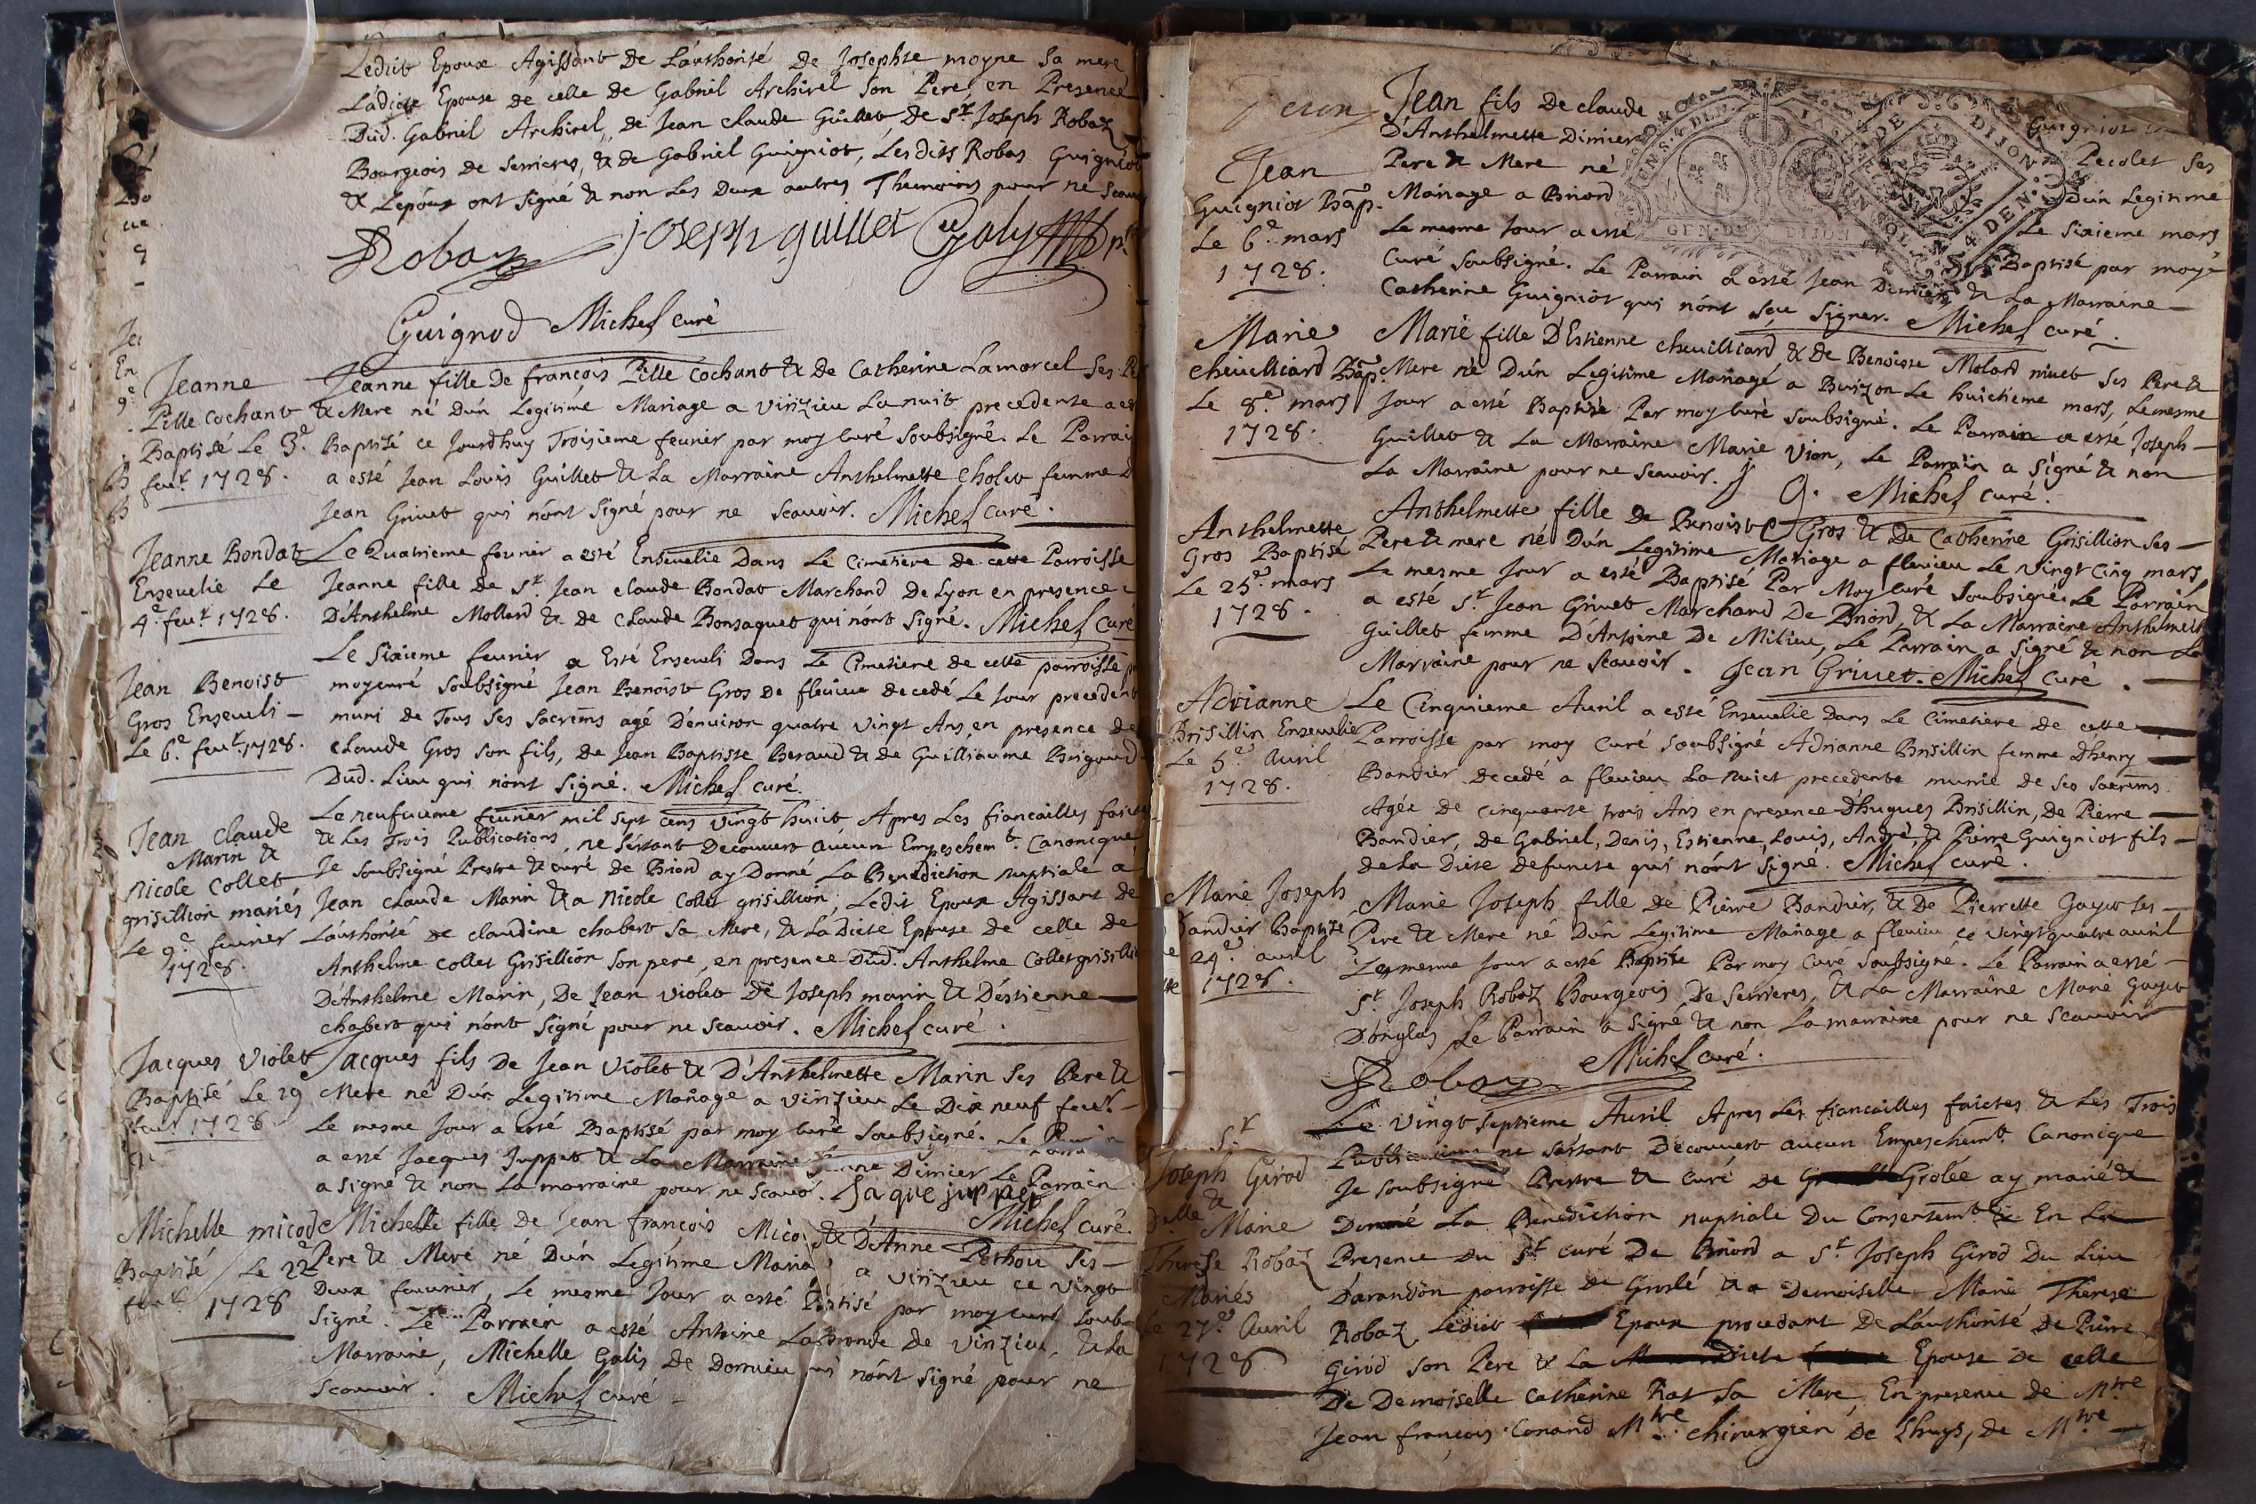 Ledict Epoux Agissant de L'authorité de Josephte moyne Sa mere
Ladicte Epouse de celle de Gabriel Archirel Son Pere, en Presence
Dud. Gabriel Archirel, de Jean claude Guillet de Sr. Joseph Robaz
Bourgeois de Serrieres, & de Gabriel Guigniot, Lesdits Robas Guigniot
& Lepoux ont signé & non Les Deux autres Themoins pour ne Scavoir
Robaz joseph guillet Galy
Guignod Michel curé
Jeanne
Pille cochant
Baptisé Le 3e
feur. 1728.
Jeanne fille de françois Pille cochant & de Catherine Lamorcel Ses
& Mere né D'un Legitime Mariage a virizieu La nuit precedente a
Baptisé ce Jourdhuy Troisieme feurier par moy Curé Soubsigné. Le Parrain
a esté Jean Louis Guillet & La Marraine Anthelmette Cholet femme D
Jean Grivet qui n'ont Signé pour ne Scavoir. Michel curé.
Jeanne Bondat
Ensevelie Le
4e feur. 1728.
Le Quatrieme feurier a esté Ensevelie Dans Le Cimetiere de cette Parroisse
Jeanne fille de Sr. Jean claude Bondat Marchand de Lyon en presence
D'Anthelme Mollard & de Claude Bonsaquet qui n'ont Signé. Michel Curé
Jean Benoist
Gros Enseveli
Le 6e feur. 1728.
Le Sixieme feurier a Esté Enseveli Dans Le Cimetiere de cette parroisse
moycuré Soubsigné Jean Benoist Gros De flevieu decedé Le Jour precedent
muni de Tous Ses Sacrems agé D'environ quatre vingt Ans, en presence de
Claude Gros Son fils, de Jean Baptiste Beraud & de Guilliaume Brigand
Dud. Lieu qui n'ont Signé. Michel curé.
Jean Claude
Marin &
Nicole Collet
grisillion mariés
Le 9e feurier
1728.
Le neufuieme feurier mil Sept cens vingt huict Apres Les fiancailles faictes
& Les Trois Publications, ne s'estant Decouvert Aucun Empeschemt. Canonique
Je Soubsigné Prestre & curé de Briord ay Donné La Benediction nuptiale a
Jean claude Marin & a Nicole Collet grisillion, Ledit Epoux Agissant de
L'authorité de claudine chabert Sa Mere, & La Dicte Epouse de celle de
Anthelme Collet Grisillion Son pere, en presence Dud. Anthelme Collet grisillion
D'Anthelme Marin, De Jean violet de Joseph marin & D'estienne
chabert qui n'ont Signé pour ne Scavoir. Michel curé.
Jacques Violet
Baptisé Le 19
feur. 1728
Jacques fils De Jean Violet & D'Anthelmette Marin Ses Pere &
Mere né D'un Legitime Mariage a virizieu Le Dix neuf feur.
Le mesme Jour a esté Baptisé par moy Curé Soubsigné. Le Parrain
a esté Jacques Juppet & La Marraine Dimier Le Parrain
a Signé & non La marraine pour ne Scavoir. Jaque juppet
Michel curé.
Michelle micod
Baptisé Le 22
feur. 1728
Michelle fille de Jean françois Mico & D'Anne Pothou Ses
Pere & Mere né D'un Legitime Maria a virizieu ce vingt
Deux feurier, Le mesme Jour a esté Baptisé par moy curé Soub
Signé. Le Parrain a esté Antoine Labronde de virizieu, & La
Marraine, Michelle Galis de Dornieu qui n'ont Signé pour ne
Scavoir. Michel curé
Jean
Guigniot Bap.
Le 6e mars
1728.
Jean fils de claude Guigniot
D'Anthelmette Dimier Pecolet Ses
Pere & Mere né D'un Legitime
Mariage a Briord Le Sixieme mars
Le mesme Jour a esté Baptisé par moy
Curé Soubsigné. Le Parrain a esté Jean Dimier & La Marraine
Catherine Guigniot qui n'ont Sçeu Signer. Michel curé.
Marie
Cheuilliard Bap.
Le 8e mars
1728.
Marie fille D'Estienne cheuilliard & de Benoiste Molard nivet Ses Pere &
Mere né D'un Legitime Mariage a Buizon Le huictieme mars, Le mesme
Jour a esté Baptisé Par moy Curé Soubsigné. Le Parrain a esté Joseph
Guillet & La Marraine Marie Vion, Le Parrain a Signé & non
La Marraine pour ne Scavoir. J G. Michel curé.
Anthelmette
Gros Baptisé
Le 25e mars
1728.
Anthelmette fille de Benoist Gros & De Catherine Grisillion Ses
Pere & mere né D'un Legitime Mariage a flevieu Le vingt Cinq mars
Le mesme Jour a esté Baptisé Par Moy Curé Soubsigné. Le Parrain
a esté Sr. Jean Grivet Marchand De Briord, & La Marraine Anthelmette
Guillet femme D'Antoine De Milieu, Le Parrain a Signé & non La
Marraine pour ne Scavoir. Jean Grivet. Michel Curé.
Adrianne
Brisillin Ensevelie
Le 5e Auril
1728.
Le Cinquieme Auril a esté Ensevelie Dans Le Cimetiere de cette
Parroisse par moy Curé Soubsigné Adrianne Brisillin femme D'henry
Bandier decedé a flevieu La nuict precedente munie de Ses Sacrems.
Agée de cinquante trois Ans en presence D'hugues Brisillin, De Pierre
Bandier, de Gabriel, Denis, Estienne, Louis, André, & Pierre Guigniot fils
de La Dicte defuncte qui n'ont Signé. Michel curé.
Marie Joseph
Bandier Baptisé
24e auril
1728.
Marie Joseph fille de Pierre Bandier, & De Pierrette Guyot Ses
Pere & Mere né D'un Legitime Mariage a flevieu ce vingt quatre auril
Le mesme Jour a esté Baptisé Par moy Curé Soubsigné. Le Parrain a esté
Sr. Joseph Robaz Bourgeois De Serrieres, & La Marraine Marie Guyot
D'onglas Le Parrain a Signé & non La marraine pour ne Scavoir
Robaz Michel curé.
Sr.
Joseph Girod
&
Delle Marie
Therese Robaz
Mariés
Le 27e Auril
1728
Le vingt Septieme Auril Apres Les fiancailles faictes & Les Trois
Publications ne s'estant Decouvert aucun Empeschemt. Canonique
Je Soubsigné Prestre & Curé de Grolée ay marié &
Donné La Benediction nuptiale Du Consentemt. & En La
Presence Du Sr. Curé De Briord a Sr. Joseph Girod Du Lieu
D'arandon parroisse de Groslé & a Demoiselle Marie Therese
Robaz Ledict Epoux procedant De L'authorité De Pierre
Girod Son Pere & La Dicte Epouse de celle
De Demoiselle Catherine Rat Sa Mere, En presence de Mtre
Jean françois Conand Mtre Chirurgien de Lhuys, de Mtre